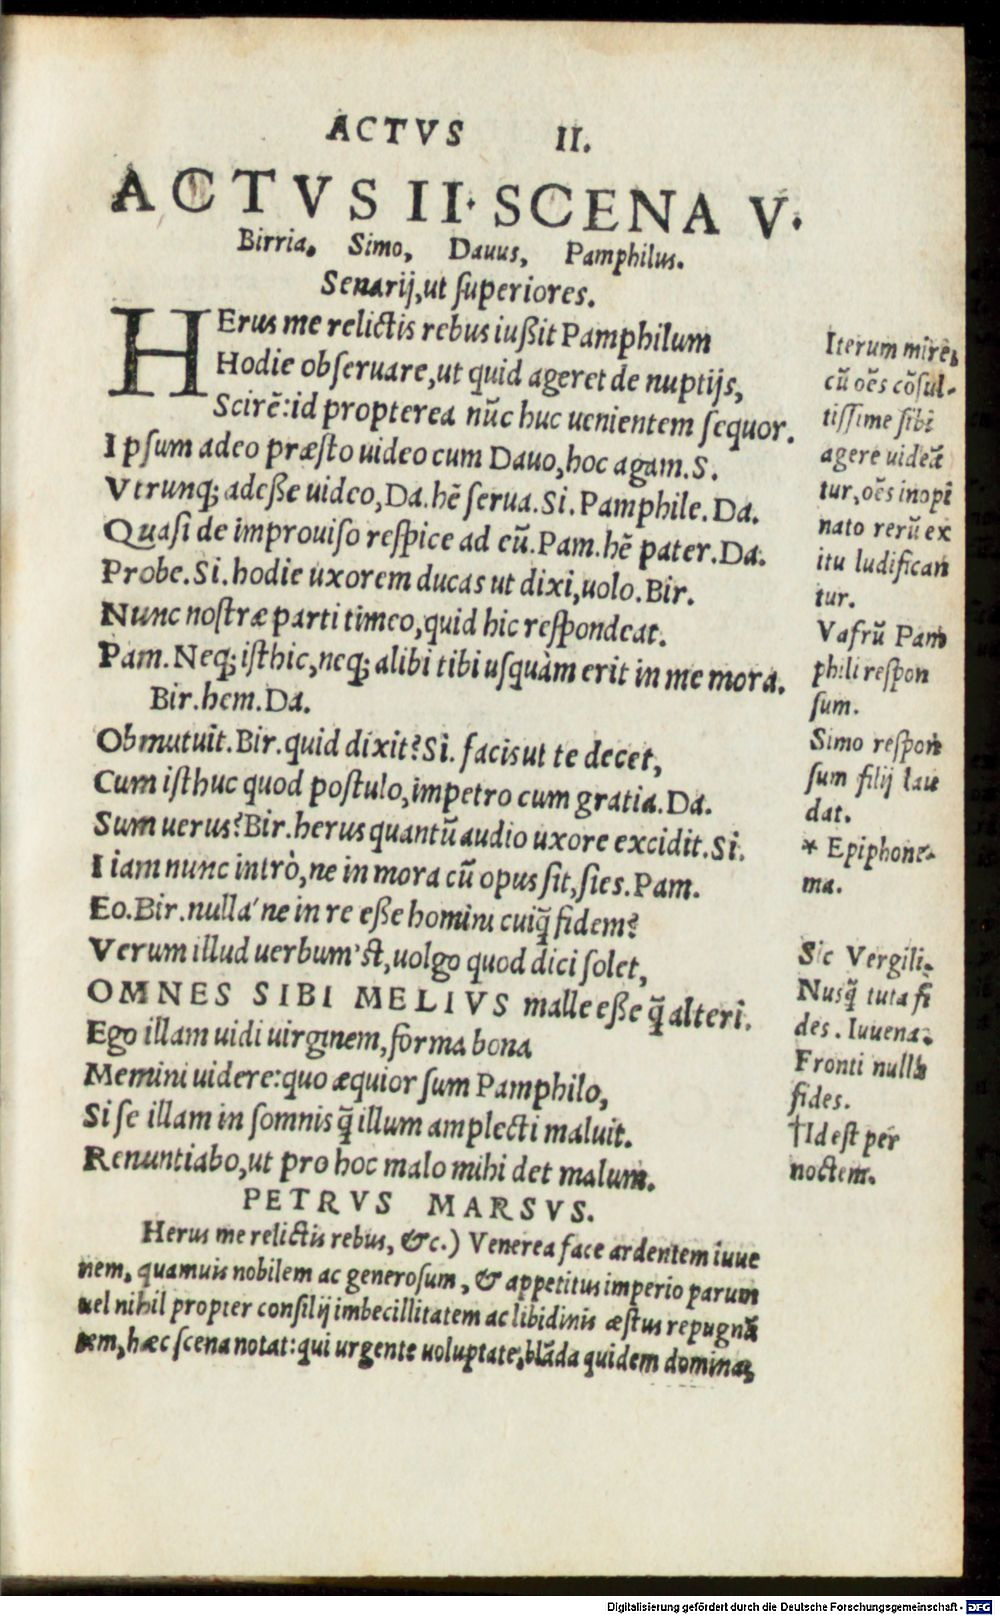 ACTVS II.
ACTVS II. SCENA V.
Birria. Simo, Dauus, Pamphilus.
Senarij, ut ſuperiores.
HErus me relictis rebus iußit Pamphilum
Hodie obſeruare, ut quid ageret de nuptijs,
Scirē: id propterea nūc huc uenientem ſequor.
Ipſum adeo præſto uideo cum Dauo, hoc agam. S.
Vtrunq; adeße uideo, Da. hē ſerua. Si. Pamphile. Da.
Quaſi de improuiſo reſpice ad eū. Pam. hē pater. Da.
Probe. Si. hodie uxorem ducas ut dixi, uolo. Bir.
Nunc noſtræ parti timeo, quid hic reſpondeat.
Pam. Neq; iſthic, neq; alibi tibi uſquàm erit in me mora.
Bir. hem. Da.
Obmutuit. Bir. quid dixit? Si. facis ut te decet,
Cum iſthuc quod poſtulo, impetro cum gratia. Da.
Sum uerus? Bir. herus quantū audio uxore excidit. Si.
I iam nunc intrò, ne in mora cū opus ſit, ſies. Pam.
Eo. Bir. nulla' ne in re eße homini cuiq̄ fidem?
Verum illud uerbum'ſt, uolgo quod dici ſolet,
OMNES SIBI MELIVS malle eße q̄ alteri.
Ego illam uidi uirginem, forma bona
Memini uidere: quo æquior ſum Pamphilo,
Si ſe illam in ſomnis q̄ illum amplecti maluit.
Renuntiabo, ut pro hoc malo mihi det malum.
PETRVS MARSVS.
Herus me relictis rebus, &c.) Venerea face ardentem iuue
nem, quamuis nobilem ac generoſum, & appetitus imperio parum
uel nihil propter conſilij imbecillitatem ac libidinis æſtus repugnā
tem, hæc ſcena notat: qui urgente uoluptate, blāda quidem domina,
Iterum mire,
cū oēs cōſul-
tiſſime ſibi
agere uideā
tur, oēs inopi
nato rerū ex
itu ludifican
tur.
Vafrū Pam
phili reſpon
ſum.
Simo reſpon
ſum filij lau
dat.
* Epiphone-
ma.
Sic Vergili.
Nuſq̄ tuta fi
des. Iuuena.
Fronti nulla
fides.
†Id eſt per
noctem.
Digitalisierung gefördert durch die Deutsche Forschungsgemeinschaft - DFG